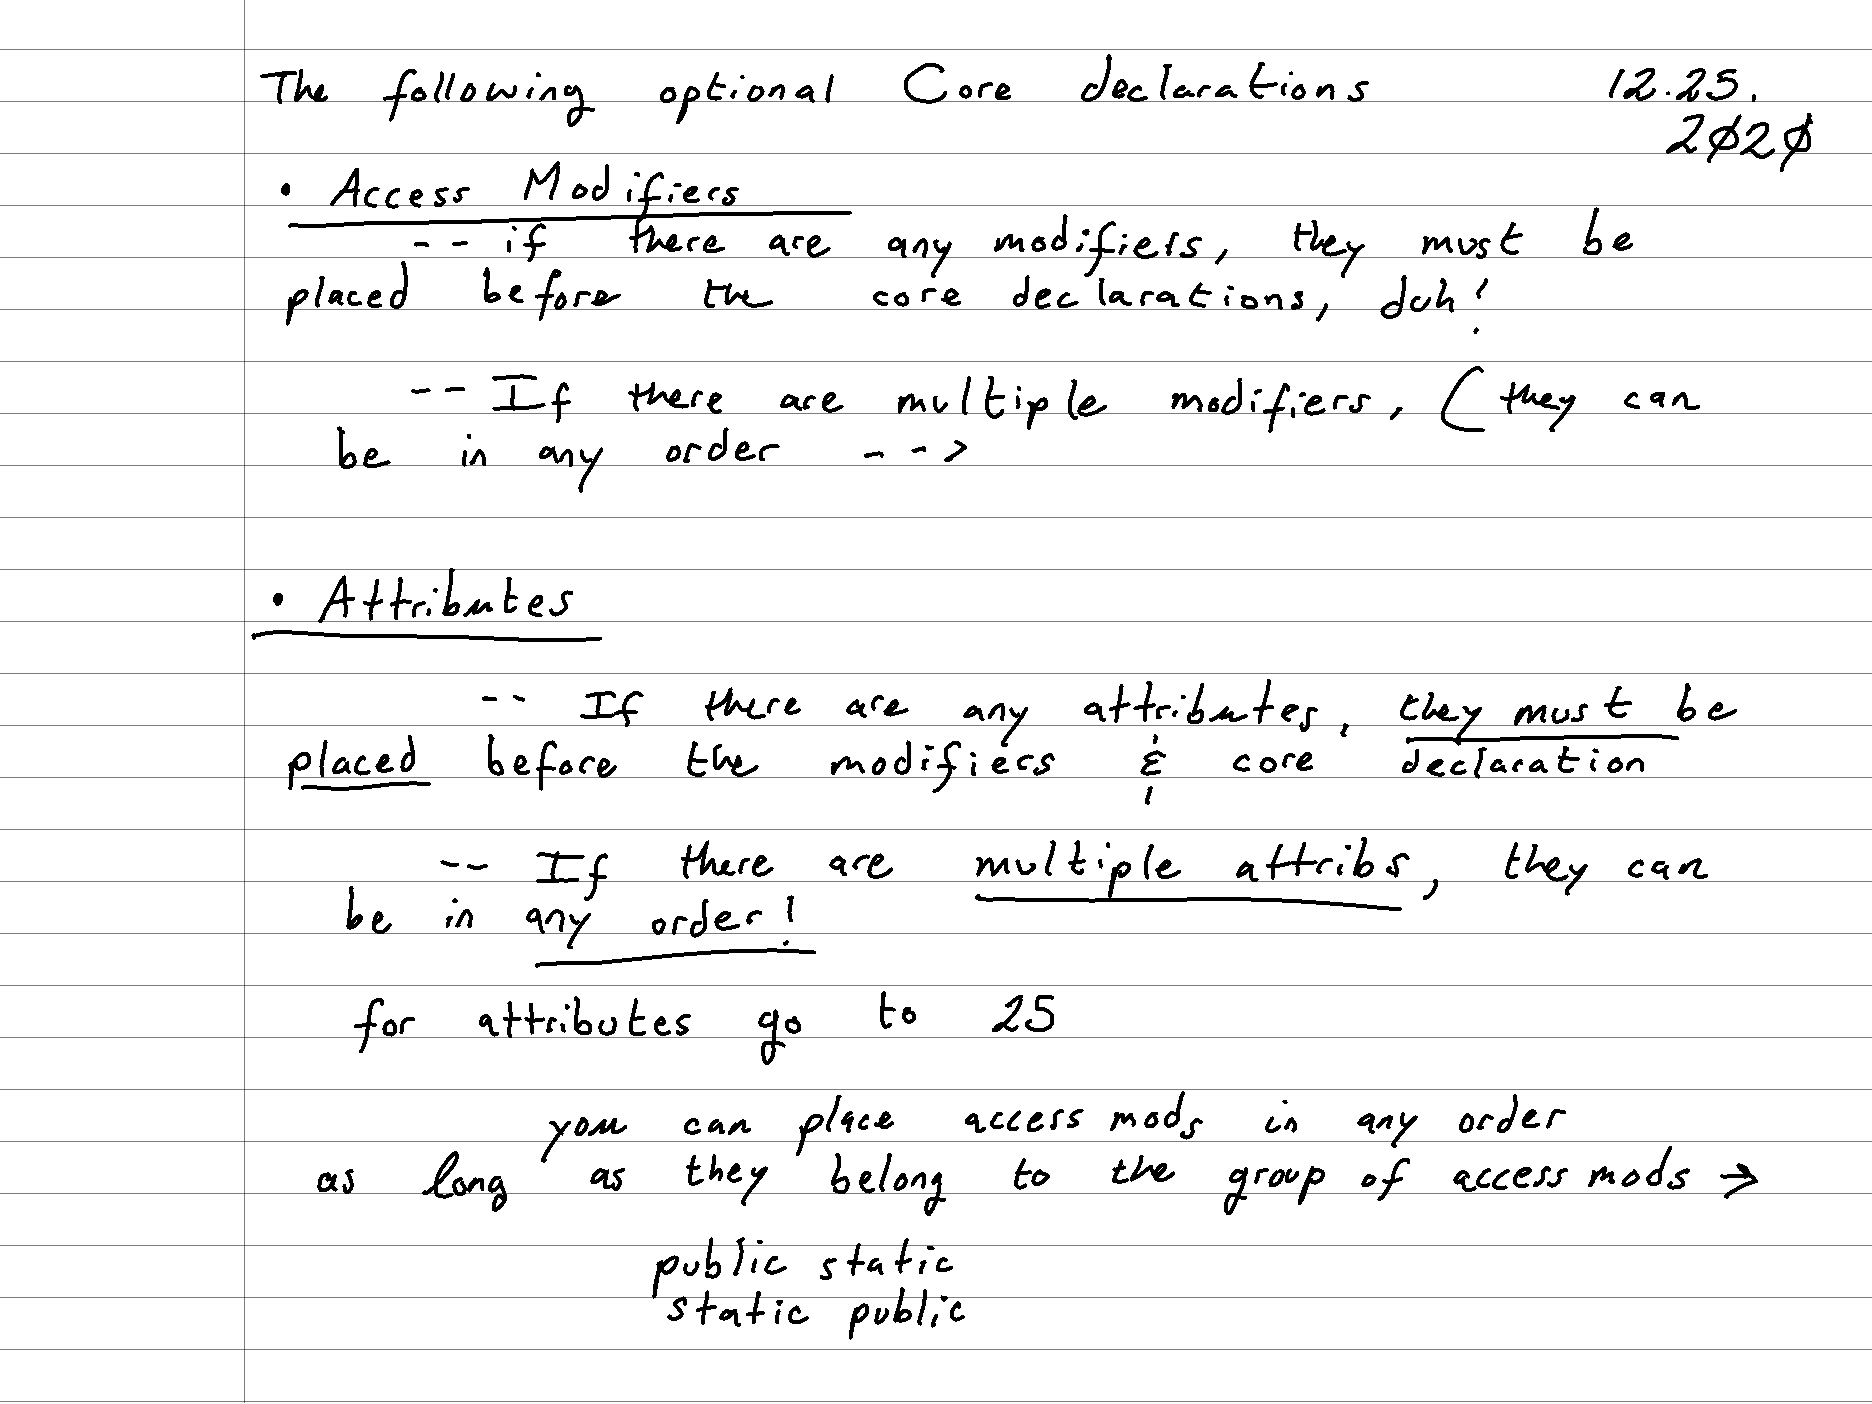 The following optional Core declarations 12.25.
2020
• Access Modifiers
-- if there are any modifiers, they must be
placed before the core declarations, duh!
-- If there are multiple modifiers, ( they can
be in any order --->
• Attributes
-- If there are any attributes, they must be
placed before the modifiers & core declaration
-- If there are multiple attribs, they can
be in any order!
for attributes go to 25
you can place access mods in any order
as long as they belong to the group of access mods →
public static
static public